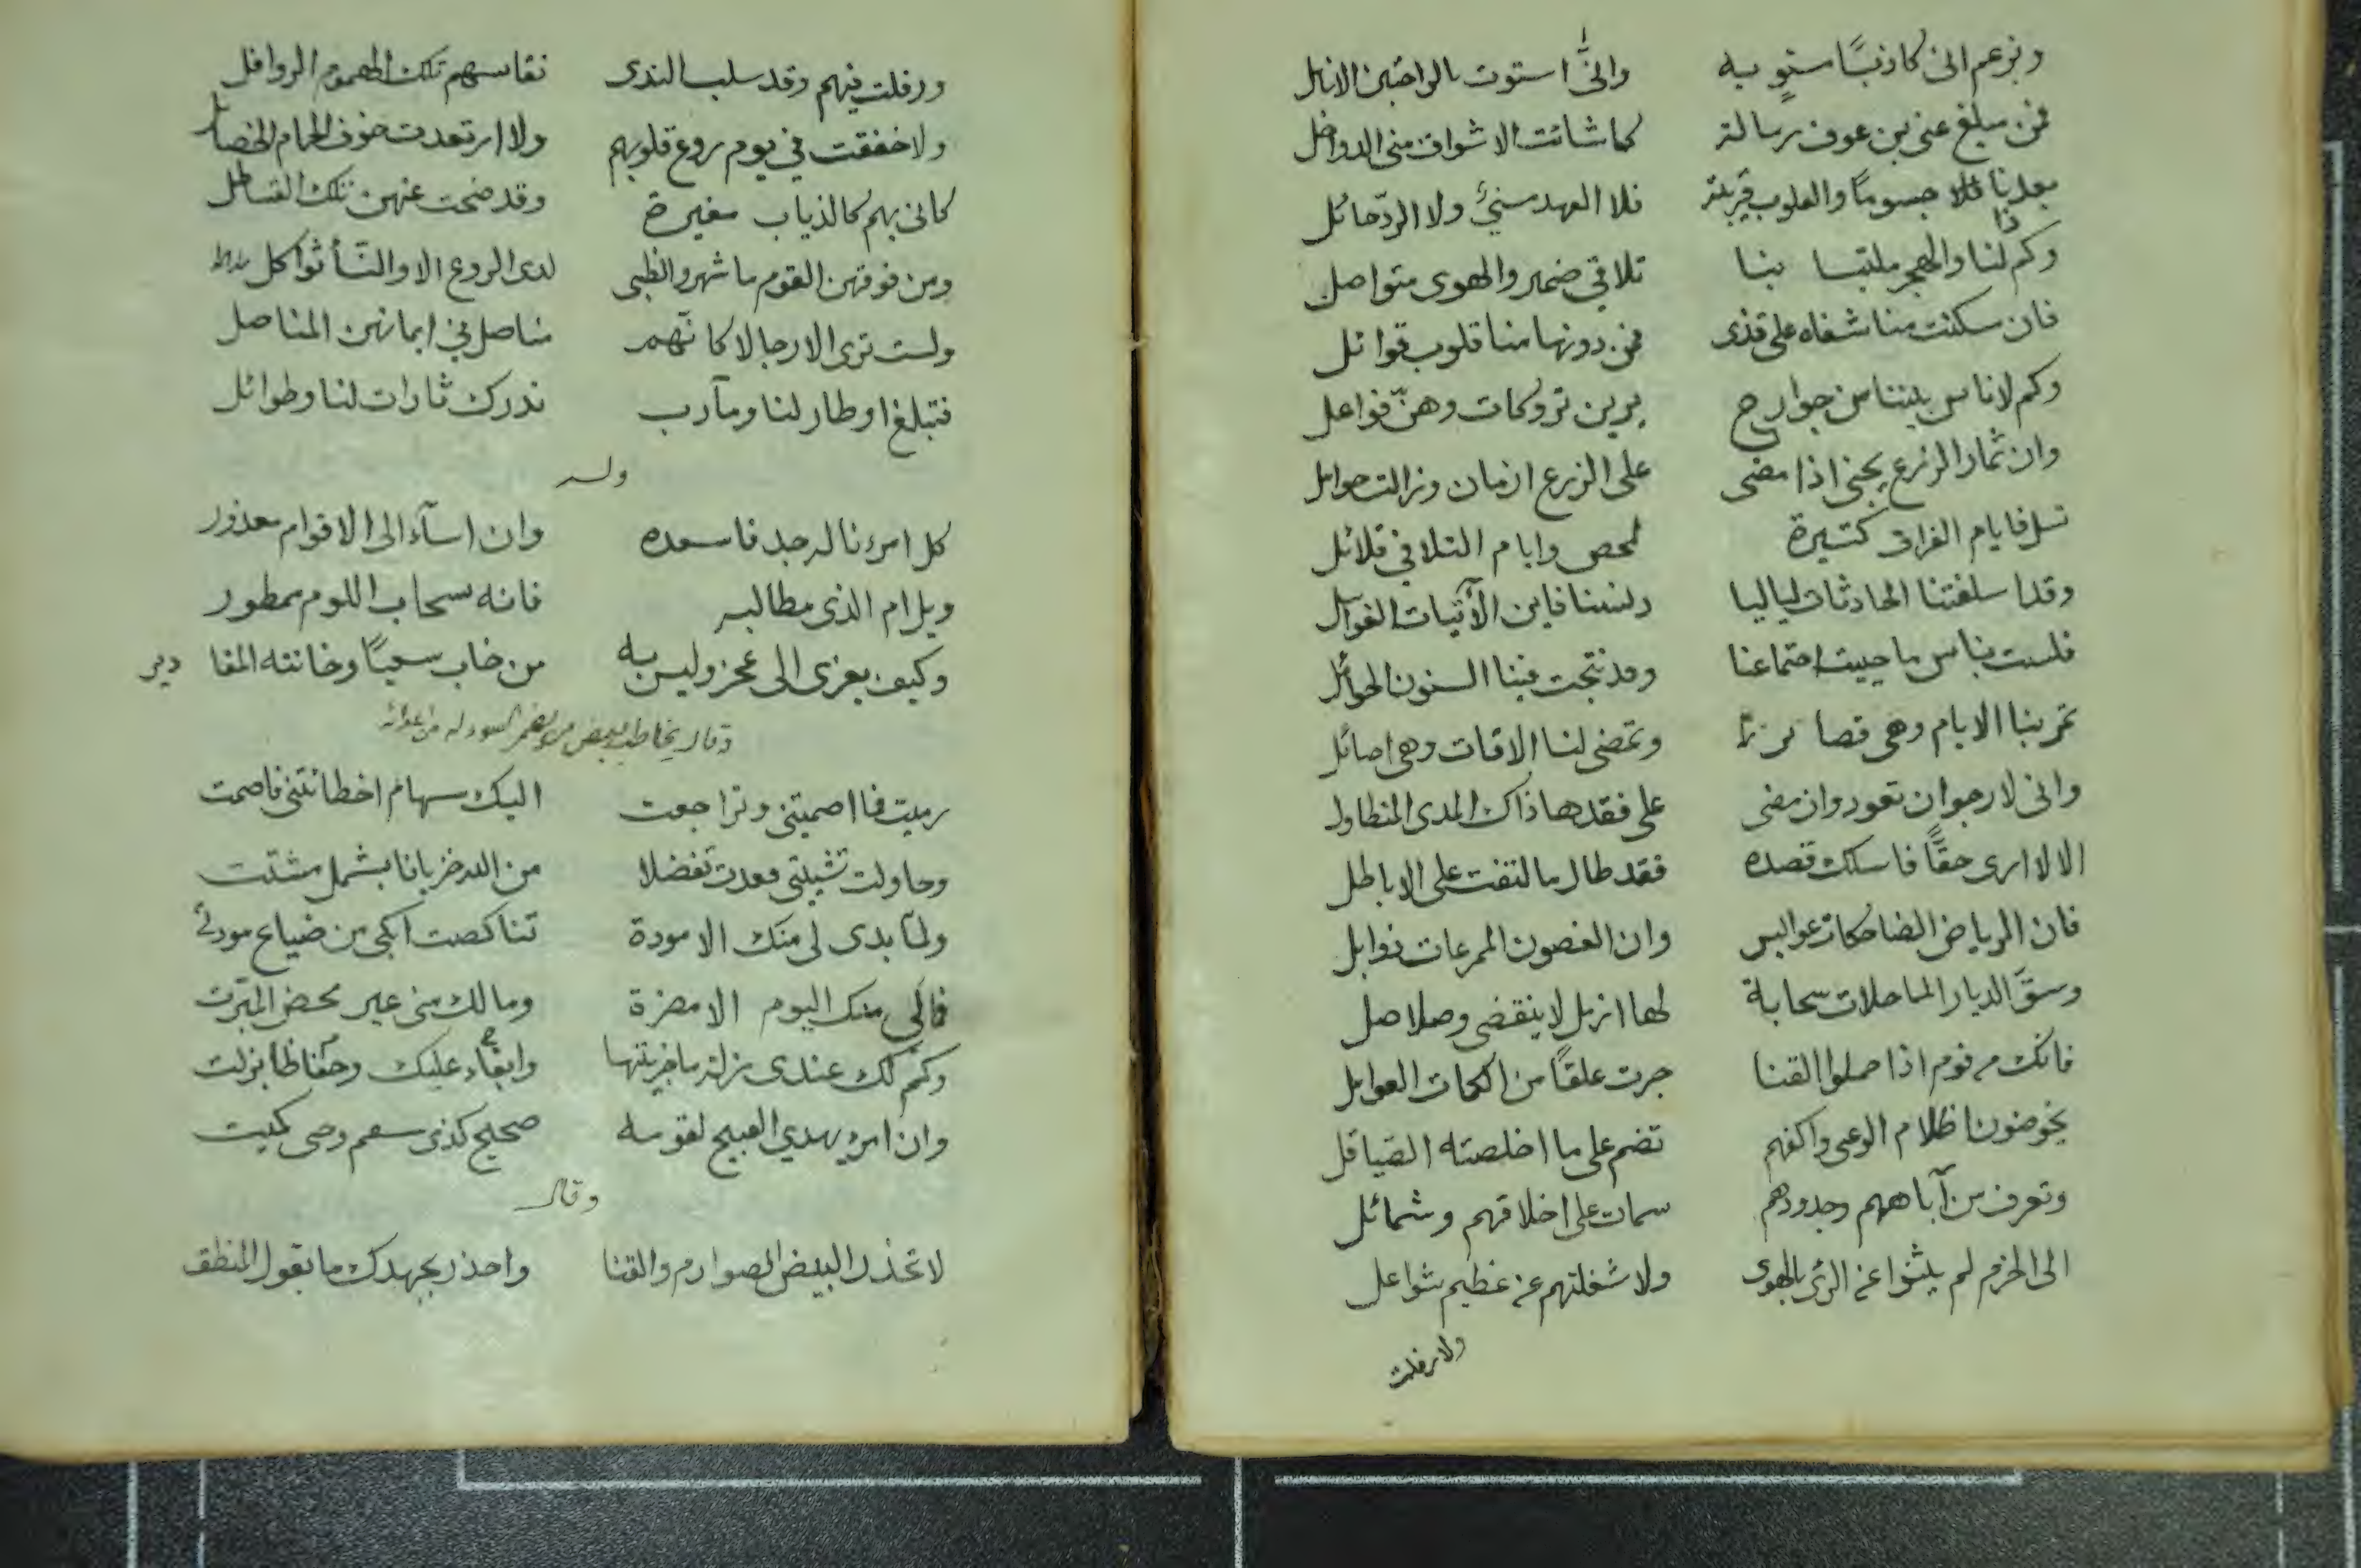 وبزعم انى كاذبًا ستو به وانى استوت بالراحتين الانامل
فمن مبلغ عنى بن عوف رسالة كما شائت الاشواق منى الدواخل
بعدنا فلا جسومًا والقلوب قريبة فلا العهد منسىٌ ولا الردّ حائل
وكم ذا لنا والهجر ملتبسا بنا تلاقى ضمير والهوى متواصل
فان سكنت منا شفاه على قذى فمن دونها منا قلوب قوائل
وكم لاناس بيننا من جوارح يرين تروكات وهنّ فواعل
وان ثمار الزرع يجنى اذا مضى على الزرع ازمان وزالت حوامل
فايام الفراق كثيرة وايام التلاقى قلائل
وقد اسلفتنا الحادثات لياليا فاين الآتيات القوابل
فلست بناس ما حييت اجتماعنا وقد نتجت فينا السنون الحوائل
تمر بنا الايام وهى قصائر وتمضى لنا الاوقات وهى اصائل
وانى لارجو ان تعود وان مضى على فقدها ذاك المدى المتطاول
الا لا ارى حقًّا فاسلك قصده فقد طال ما التفت على الاباطل
فان الرياض الضاحكات عوابس وان الغصون الممرعات ذوابل
وسقّ الديار الماحلات سحابة لها ازمل لا ينقضى وصلاصل
فانك من قوم اذا حملوا القنا جرت علقًا من الكمات العوامل
يخوضون اظلام الوغى واكفهم تضم على ما اخلصته الصياقل
وتعرف من آباههم وجدودهم سمات على اخلاقهم وشمائل
الى الحزم لم يلثوا عن الرئ بالهوى ولا شغلتهم عن عظيم شواغل
ولا رفلت
ورفلت فيهم وقد سلب الندى نفاسهم تلك الهموم الروافل
ولا خفقت فى يوم روع قلوبهم ولا ارتعدت خوف الحمام الخصائل
كانى بهم كالذياب مغيرة وقد ضحت عنهن تلك القساطل
ومن فوقهن القوم ما شهروا الظبى لدى الروع الا والنسأ ثواكل
ولست ترى الا رجالا كانهم مناصل فى ايمانهن المناصل
فتبلغ اوطار لنا ومآرب ندرك ثارات لنا وطوائل
وله
كل امرء ناله جد فاسعده وان اسآء الى الاقوام معذور
ويل ام الذى مطالبه فانه بسحاب اللوم ممطور
وكيف يعزى الى عجز وليس به من خاب سعيًا وخانته المقادير
وقال يخاطب بعض من
رميت فما اصميتنى وتراجعت اليك سهام اخطائتنى فاصمت
وحاولت تشتيتى فعدت تفضلا من الله خزيانا بشمل مشتت
ولمّا بدى لى منك الا مودة تناكصت ابكى من ضياع مودتى
فما لى منك اليوم الا مضرة ومالك منى غير محض المبرّت
وكم لك عندى زلة ما جزيتها وابقآء عليك وحفاظا بزلت
وان امرء يهدى القبيح لقومه صحيح كذى سقم وحى كميت
وقال
لا تحذر البيض الصوارم والقنا واحذر بجهدك ما يقول المنطق